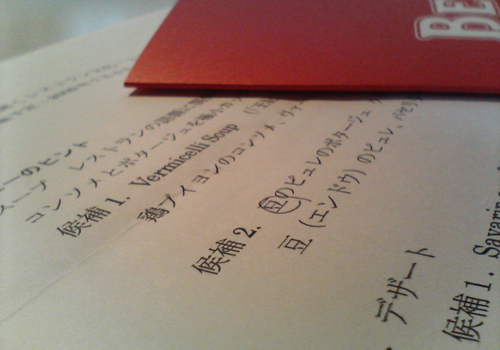 BE
ーのヒント
スープ レストランの
コンソメとポタージュを
候補 1. Vermicelli Soup
鶏ブイヨンのコンソメ、ヴァー
候補 2. 豆のピュレのポタージュ
豆 (エンドウ) のピュレ、パセリ
デザート
候補 1. Savarin